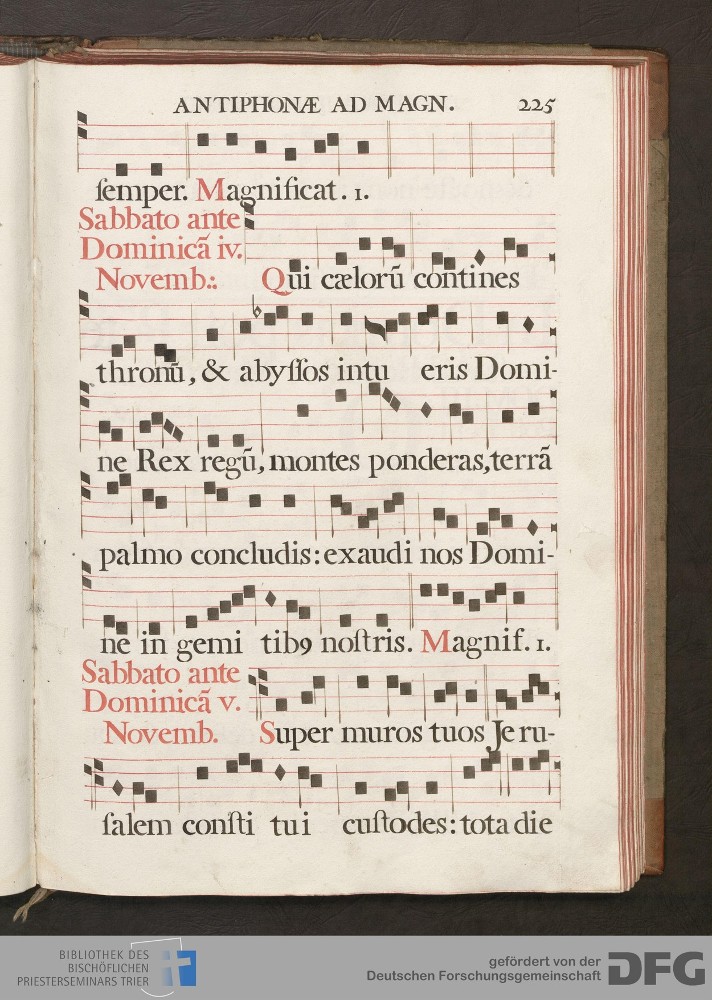 ANTIPHONÆ AD MAGN. 225
ſemper. Magnificat. 1.
Sabbato ante
Dominicã iv.
Novemb:. Qui cælorũ contines
thronũ, & abyſſos intu eris Domi-
ne Rex regũ, montes ponderas, terrã
palmo concludis: exaudi nos Domi-
ne in gemi tibꝰ noſtris. Magnif. 1.
Sabbato ante
Dominicã v.
Novemb. Super muros tuos Je ru-
ſalem conſti tui cuſtodes: tota die
BIBLIOTHEK DES
BISCHÖFLICHEN
PRIESTERSEMINARS TRIER
gefördert von der
Deutschen Forschungsgemeinschaft DFG